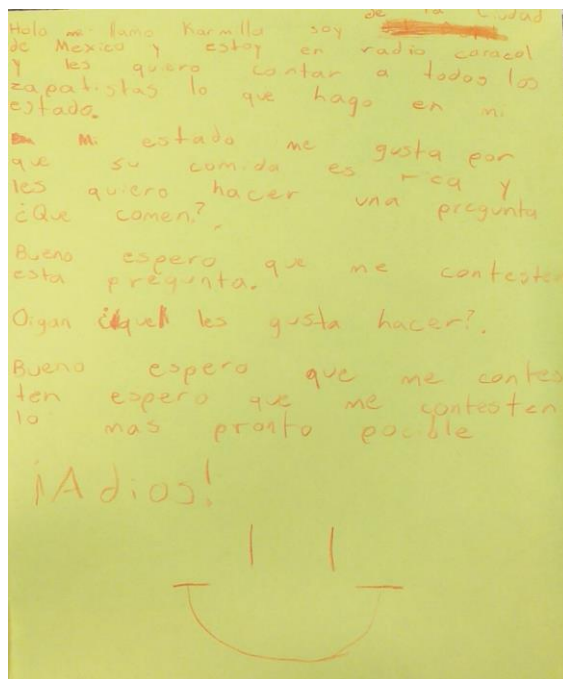 de la Ciudad
Hola me llamo Karmilla soy
de Mexico y estoy en radio caracol
Y les quiero contar a todos los
zapatistas lo que hago en mi
estado.
Mi estado me gusta por
que su comida es rica y
les quiero hacer una pregunta
¿Que comen?
Bueno espero que me contesten
esta pregunta.
Oigan ¿que les gusta hacer?.
Bueno espero que me contes
ten espero que me contesten
lo mas pronto pocible
¡Adios!